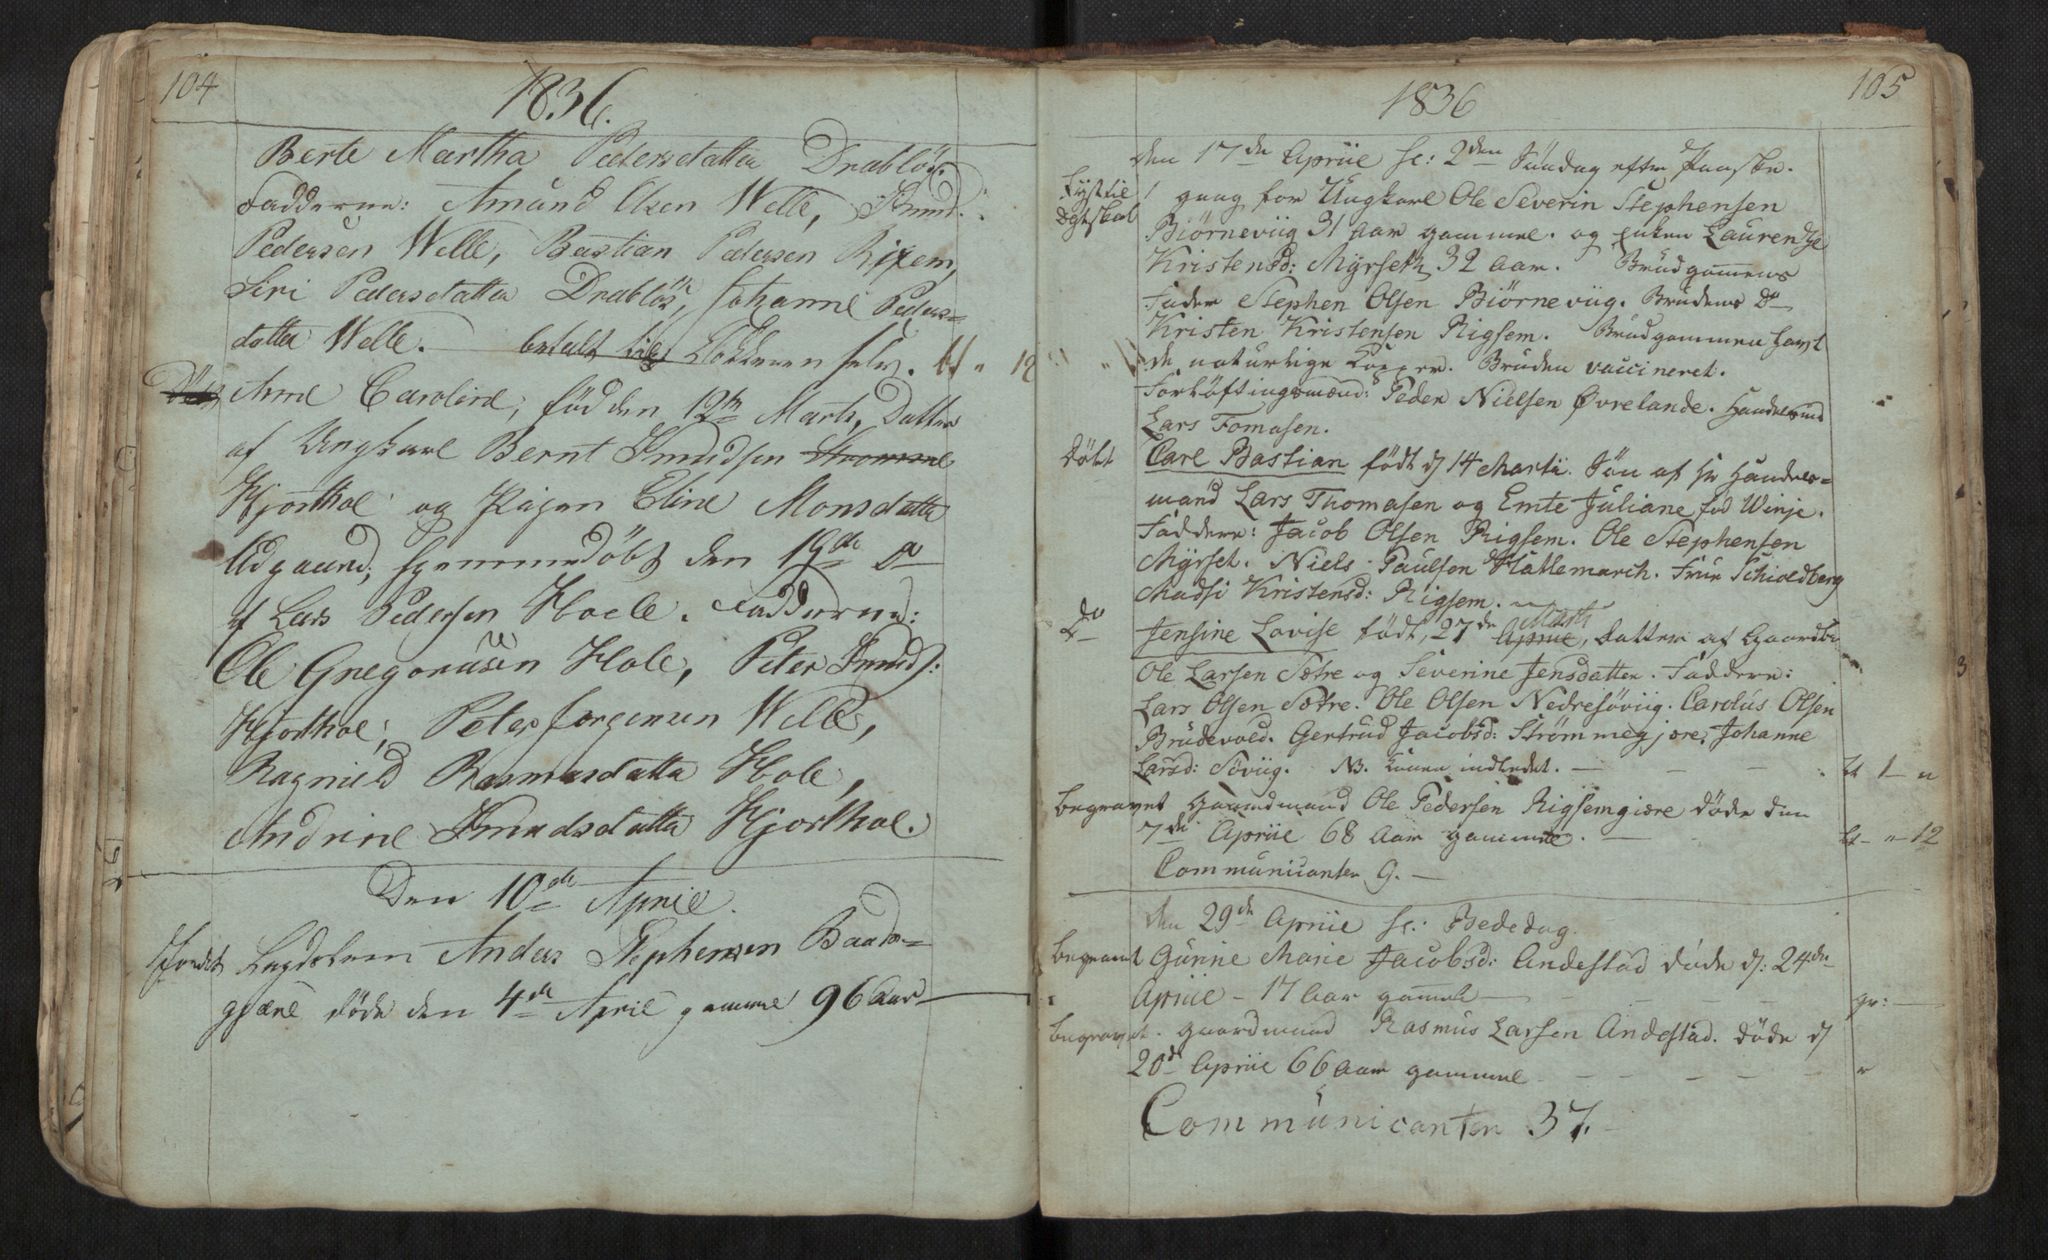 104
1836.
Berte Martha Pedersdatter Drabløs.
Fadderne: Amund Olsen Welle, Knud
Pedersen Welle, Bastian Pedersen Rixem,
Siri Pedersdatter Drabløs, Johanne Peders=
datter Welle. betalt til Klokkeren selv. bt " 12
Døbt, Anne Caroline, född den 12te Marts, Datter
af Ungkarl Bernt Knudsen Strømme
Hjorthol og Pigen Eline Monsdatter
Ødgaard, hjemmedøbt den 19de do
af Lars Pedersen Hoele. Fadderne:
Ole Gregoriusen Hole, Peter Knuds:
Hjorthol, Peter Jørgensen Welle,
Ragnild Rasmusdatter Hole,
Andrine Knudsdatter Hjorthol.
Den 10de April.
Jordet Lægdslem Anders Stephensen Baads=
gjære døde den 4de April gammel 96 Aar
105
1836
Den 17de April sc: 2den Søndag efter Paaske.
Lystil 1 gang for Ungkarl Ole Severin Stephensen
Ægteskab Biørneviig 31 Aar gammel. og Enken Laurendze
Kristensd: Myrseth 32 Aar. Brudgommens
Fader Stephen Olsen Biørneviig. Brudens Do
Kristen Kristensen Rigsem. Brudgommen havt
de naturlige Kopper. Bruden vaccineret.
Forløftingsmænd: Peder Nielsen Øvrelande. Handelsmd
Lars Tomasen.
Døbt Carl Bastian født d 14 Marti. Søn af Hr Handels=
mand Lars Thomasen og Emte Juliane fød Winje.
Faddere: Jacob Olsen Rigsem. Ole Stephensen
Myrset. Niels Paulsen Hatlemarch. Frue Schioldberg
Madsi Kristensd: Rigsem.
Do Jensine Lovise født, 27de April, Marti Datter af Gaardbr
Ole Larsen Sætre og Severine Jensdatter. Faddere:
Lars Olsen Sætre. Ole Olsen Nedresøviig. Carolus Olsen
Brudevold. Gertrud Jacobsd: Strømmegjære. Johanne
Larsd: Søviig. NB. Konen indledet. — bt 1 — "
begravet Gaardmand Ole Pedersen Rigsemgiære døde den
7de April 68 Aar gammel. — bt — " — 12
Communicanter 9. —
Den 29de April sc: Bededag.
begravet Gunne Marie Jacobsd: Andestad døde d: 24de
April — 17 Aar gammel — gr: —
begravet. Gaardmand Rasmus Larsen Andestad. døde d
20de April 66 Aar gammel — "
Communicanter 37.